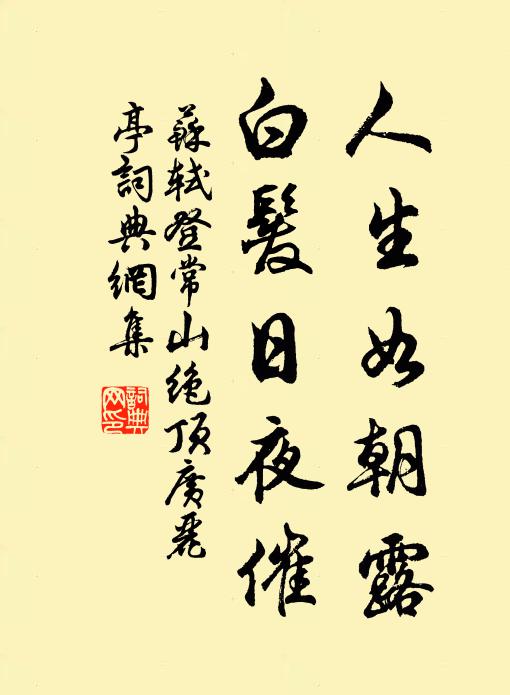 人生如朝露
白髮日夜催
蘇軾登常山絶頂廣麗
亭詞典網集
詞典
网印